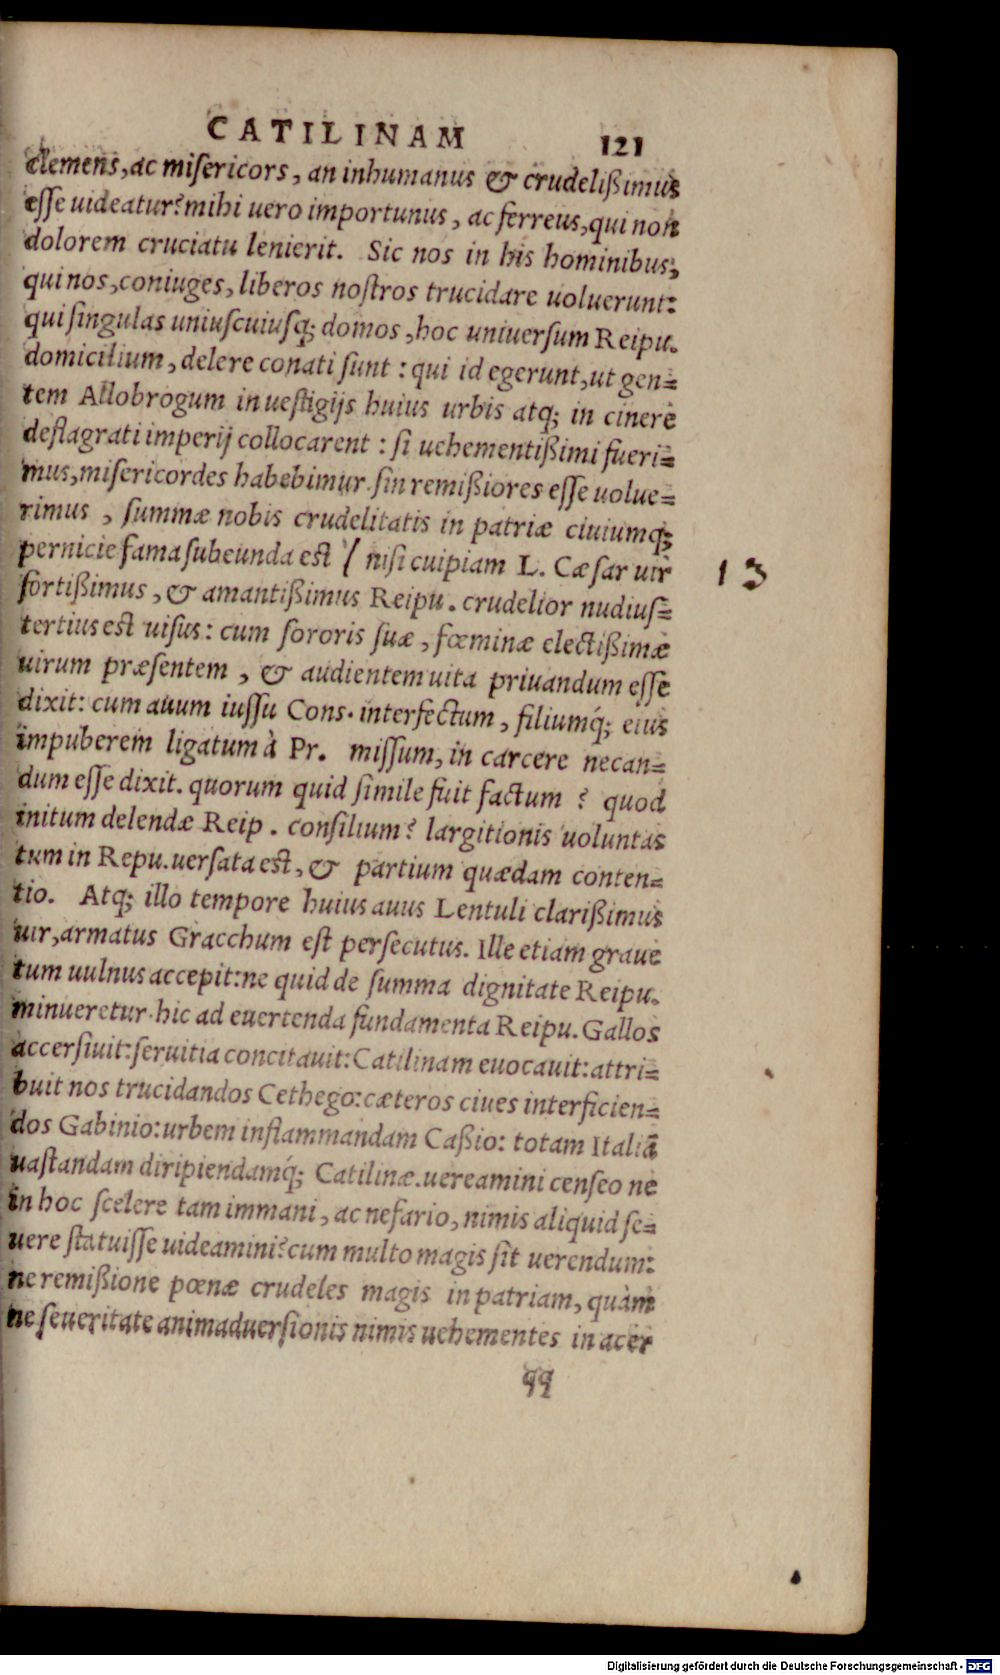 CATILINAM 121
clemens, ac miſericors, an inhumanus & crudelißimus
eſſe uideatur? mihi uero importunus, ac ferreus, qui non
dolorem cruciatu lenierit. Sic nos in his hominibus,
qui nos, coniuges, liberos noſtros trucidare uoluerunt:
qui ſingulas uniuſcuiuſq; domos, hoc uniuerſum Reipu.
domicilium, delere conati ſunt: qui id egerunt, ut gen=
tem Allobrogum in ueſtigijs huius urbis atq; in cinere
deflagrati imperij collocarent: ſi uehementißimi fueri=
mus, miſericordes habebimur. ſin remißiores eſſe uolue=
rimus, ſummæ nobis crudelitatis in patriæ ciuiumq;
pernicie fama ſubeunda eſt / niſi cuipiam L. Cæſar uir
13
fortißimus, & amantißimus Reipu. crudelior nudiuſ=
tertius eſt uiſus: cum ſororis ſuæ, fœminæ electißimæ
uirum præſentem, & audientem uita priuandum eſſe
dixit: cum auum iuſſu Conſ. interfectum, filiumq́; eius
impuberem ligatum à Pr. miſſum, in carcere necan=
dum eſſe dixit. quorum quid ſimile fuit factum? quod
initum delendæ Reip. conſilium? largitionis uoluntas
tum in Repu. uerſata eſt, & partium quædam conten=
tio. Atq; illo tempore huius auus Lentuli clarißimus
uir, armatus Gracchum eſt perſecutus. Ille etiam graue
tum uulnus accepit: ne quid de ſumma dignitate Reipu.
minueretur. hic ad euertenda fundamenta Reipu. Gallos
accerſiuit: ſeruitia concitauit: Catilinam euocauit: attri=
buit nos trucidandos Cethego: cæteros ciues interficien=
dos Gabinio: urbem inflammandam Caßio: totam Italiã
uaſtandam diripiendamq́; Catilinæ. uereamini cenſeo ne
in hoc ſcelere tam immani, ac nefario, nimis aliquid ſe=
uere ſtatuiſſe uideamini? cum multo magis ſit uerendum:
ne remißione pœnæ crudeles magis in patriam, quàm
ne ſeueritate animaduerſionis nimis uehementes in acer
qq
Digitalisierung gefördert durch die Deutsche Forschungsgemeinschaft - DFG